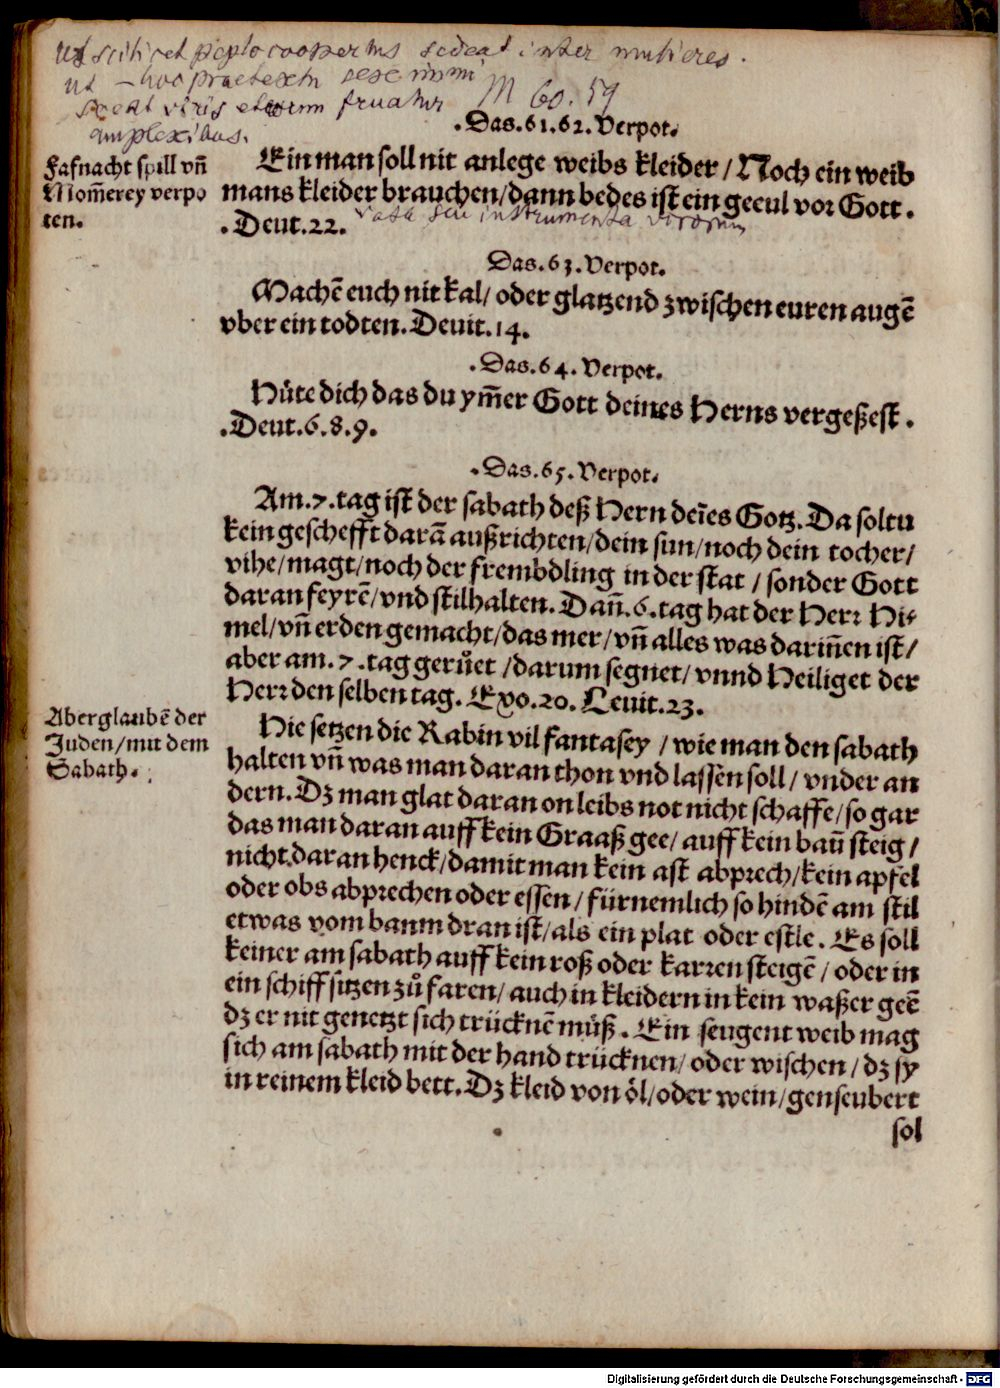 ut scilicet peplo coopertus sedeat inter mulieres.
ut hoc praetextu
viris fruatur M 60. 59
amplexibus.
.Das.61.62.Verpot.
Fasnacht spill vn̄
Mom̄erey verpo
ten.
Ein man soll nit anlege weibs kleider / Noch ein weib
mans kleider brauchen / dann bedes ist ein geeul vor Gott.
.Deut.22.
vasa seu instrumenta virorum
Das.63.Verpot.
Machē euch nit kal / oder glatzend zwischen euren augē
vber ein todten. Deuit.14.
.Das.64.Verpot.
Hüte dich das du ym̄er Gott deines Herns vergeßest.
.Deut.6.8.9.
.Das.65.Verpot.
Am.7.tag ist der sabath deß Hern deīes Gotz. Da soltu
kein geschefft darā außrichten / dein sun / noch dein tocher /
vihe / magt / noch der frembdling in der stat / sonder Gott
daran feyrē / vnd stilhalten. Dan̄.6.tag hat der Herr Hi-
mel / vn̄ erden gemacht / das mer / vn̄ alles was darin̄en ist /
aber am.7.tag gerůet / darum segnet / vnnd Heiliget der
Herr den selben tag. Exo.20. Leuit.23.
Aberglaubē der
Juden / mit dem
Sabath.
Hie setzen die Rabin vil fantasey / wie man den sabath
halten vn̄ was man daran thon vnd lassen soll / vnder an
dern. Dz man glat daran on leibs not nicht schaffe / so gar
das man daran auff kein Graaß gee / auff kein baū steig /
nicht daran henck / damit man kein ast abprech / kein apfel
oder obs abprechen oder essen / fürnemlich so hindē am stil
etwas vom baum dran ist / als ein plat oder estle. Es soll
keiner am sabath auff kein roß oder karren steigē / oder in
ein schiff sitzen zů faren / auch in kleidern in kein waßer geē
dz er nit genetzt sich trücknē můß. Ein seugent weib mag
sich am sabath mit der hand trücknen / oder wischen / dz sy
in reinem kleid bett. Dz kleid von öl / oder wein / genseubert
sol
Digitalisierung gefördert durch die Deutsche Forschungsgemeinschaft - DFG